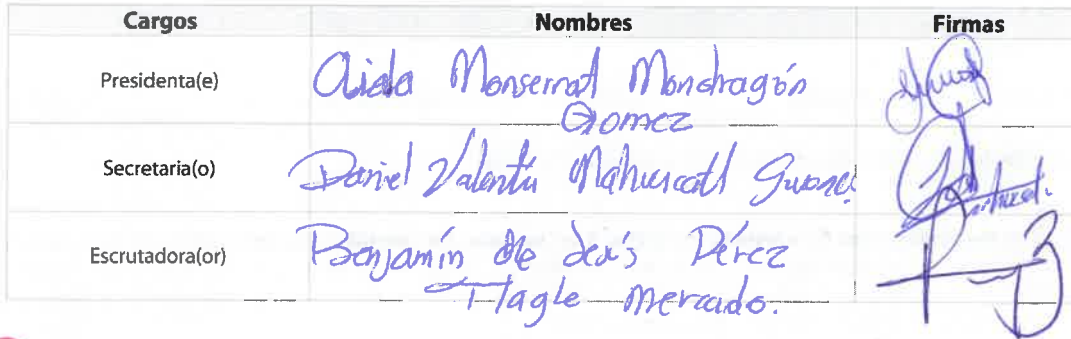 Cargos Nombres Firmas
Presidenta(e) Aida Monserrat Mondragón
Gomez
Secretaria(o) Daniel Valentín
Escrutadora(or) Benjamín de Jesús Pérez
Tlagle Mercado.